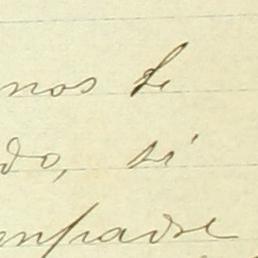 nos te
do, si
enpadre